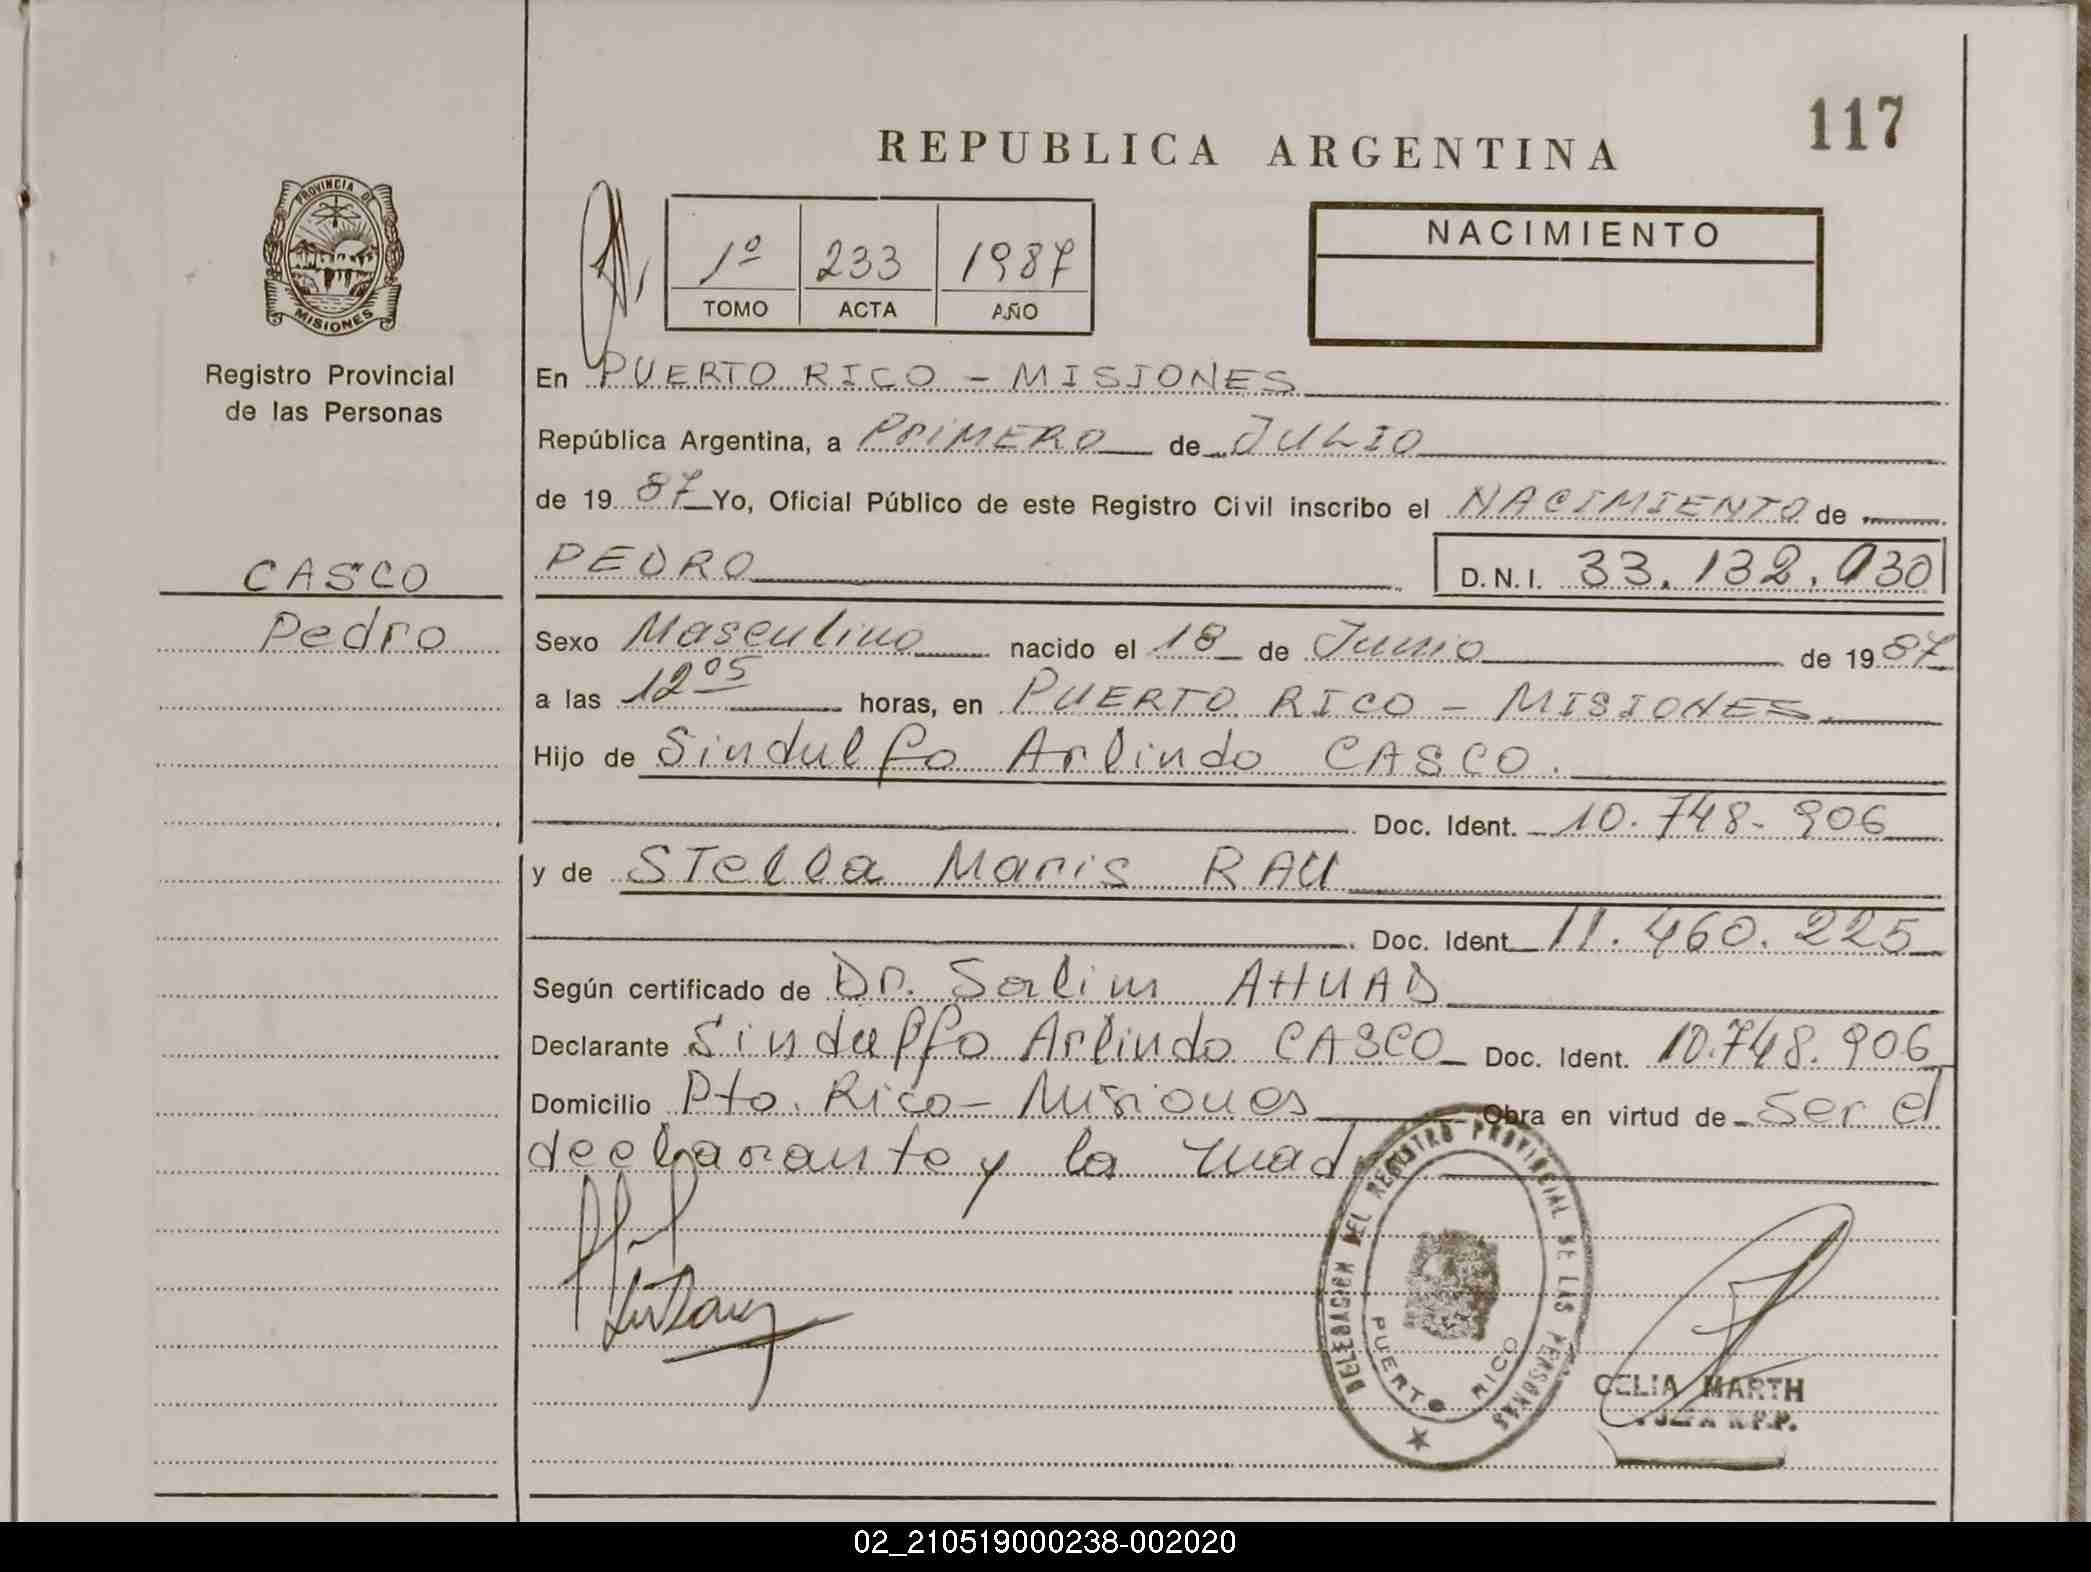 117
REPUBLICA ARGENTINA
PROVINCIA DE
MISIONES
1º 233 1987
TOMO ACTA AÑO
NACIMIENTO
Registro Provincial
de las Personas
En PUERTO RICO - MISIONES
República Argentina, a PRIMERO de JULIO
de 19 87 Yo, Oficial Público de este Registro Civil inscribo el NACIMIENTO de
CASCO
Pedro
PEDRO D.N.I. 33.132.030
Sexo Masculino nacido el 18 de Junio de 19 87
a las 12 05 horas, en PUERTO RICO - MISIONES.
Hijo de Sindulfo Arlindo CASCO.
Doc. Ident. 10.748.906
y de STella Maris RAU
Doc. Ident. 11.460.225
Según certificado de Dr. Salim AHUAD
Declarante Sindulfo Arlindo CASCO Doc. Ident. 10.748.906
Domicilio Pto. Rico - Misiones Obra en virtud de Ser el
declarante y la mad
DELEGACION DEL REGISTRO PROVINCIAL DE LAS PERSONAS
PUERTO RICO
CELIA MARTH
R.P.P.
02_210519000238-002020